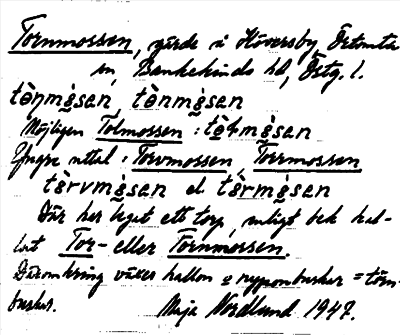 Tornmossen, gärde i Höversby, Örtomta
sn, Bankekinds hd, Östg. l.
tò̤ŋmò̤san, tò̤nmò̤san
Möjligen Tolmossen : tò̤ɫmò̤san
Yngre uttal : Torvmossen, Torrmossen
tò̤rvmò̤san el. tò̤rmò̤san
Där har legat ett torp, enligt bek. kal-
lat Tor- eller Törnmossen.
Däromkring växer hallon o nyponbuskar = törn-
buskar. Maja Nordlund 1947.